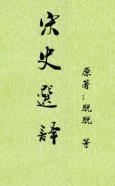 宋史選譯
原著:脫脫 等